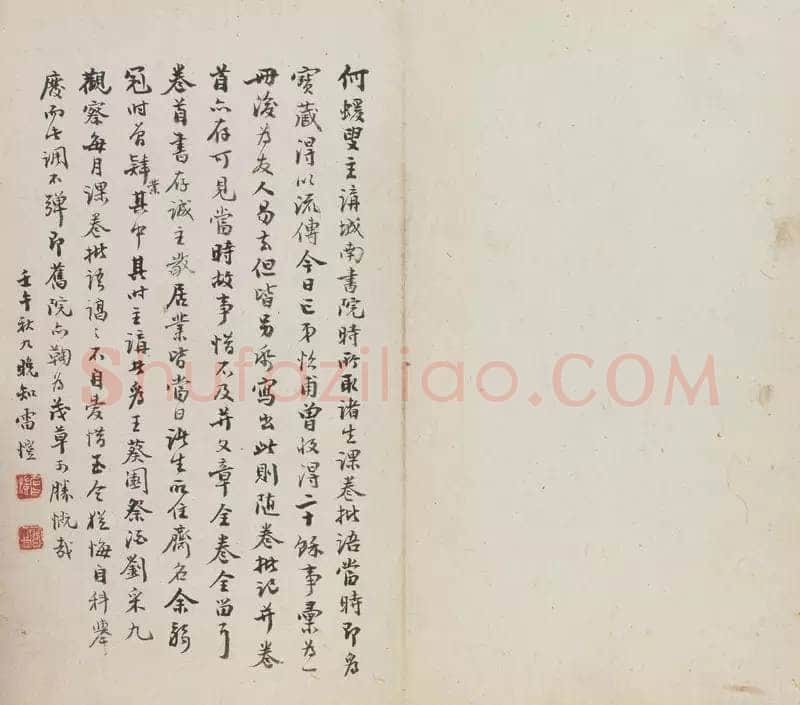 何蝯叟主講城南書院時所取諸生課卷批語當時即為
寶藏得以流傳今日亡弟佽甫曾收得二十餘事彙為一
冊後為友人易去但皆另紙寫出此則隨卷批記并卷
首亦存可見當時故事惜不及并文章全卷全留耳
卷首書存誠主敬居業皆當日諸生所住齋名余弱
冠時曾肄業其中其時主講者為王葵園祭酒劉采九
觀察每月課卷批語藹藹不自愛惜至今猶悔自科舉
廢而此調不彈即舊院亦鞠為茂草可勝慨哉
壬午秋九晚知雷愷
Shufaziliao.COM